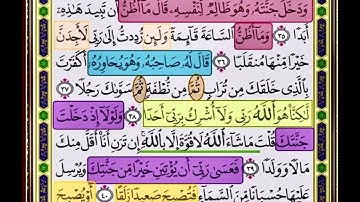 وَدَخَلَ جَنَّتَهُۥ وَهُوَ ظَالِمٌ لِّنَفْسِهِۦ قَالَ مَآ أَظُنُّ أَن تَبِيدَ هَٰذِهِۦٓ
أَبَدًا ٣٥ وَمَآ أَظُنُّ ٱلسَّاعَةَ قَآئِمَةً وَلَئِن رُّدِدتُّ إِلَىٰ رَبِّى لَأَجِدَنَّ
خَيْرًا مِّنْهَا مُنقَلَبًا ٣٦ قَالَ لَهُۥ صَاحِبُهُۥ وَهُوَ يُحَاوِرُهُۥٓ أَكَفَرْتَ
بِٱلَّذِى خَلَقَكَ مِن تُرَابٍ ثُمَّ مِن نُّطْفَةٍ ثُمَّ سَوَّىٰكَ رَجُلًا ٣٧
لَّٰكِنَّا۠ هُوَ ٱللَّهُ رَبِّى وَلَآ أُشْرِكُ بِرَبِّىٓ أَحَدًا ٣٨ وَلَوْلَآ إِذْ دَخَلْتَ
جَنَّتَكَ قُلْتَ مَا شَآءَ ٱللَّهُ لَا قُوَّةَ إِلَّا بِٱللَّهِ إِن تَرَنِ أَنَا۠ أَقَلَّ مِنكَ
مَالًا وَوَلَدًا ٣٩ فَعَسَىٰ رَبِّىٓ أَن يُؤْتِيَنِ خَيْرًا مِّن جَنَّتِكَ وَيُرْسِلَ
عَلَيْهَا حُسْبَانًا مِّنَ ٱلسَّمَآءِ فَتُصْبِحَ صَعِيدًا زَلَقًا ٤٠ أَوْ يُصْبِحَ